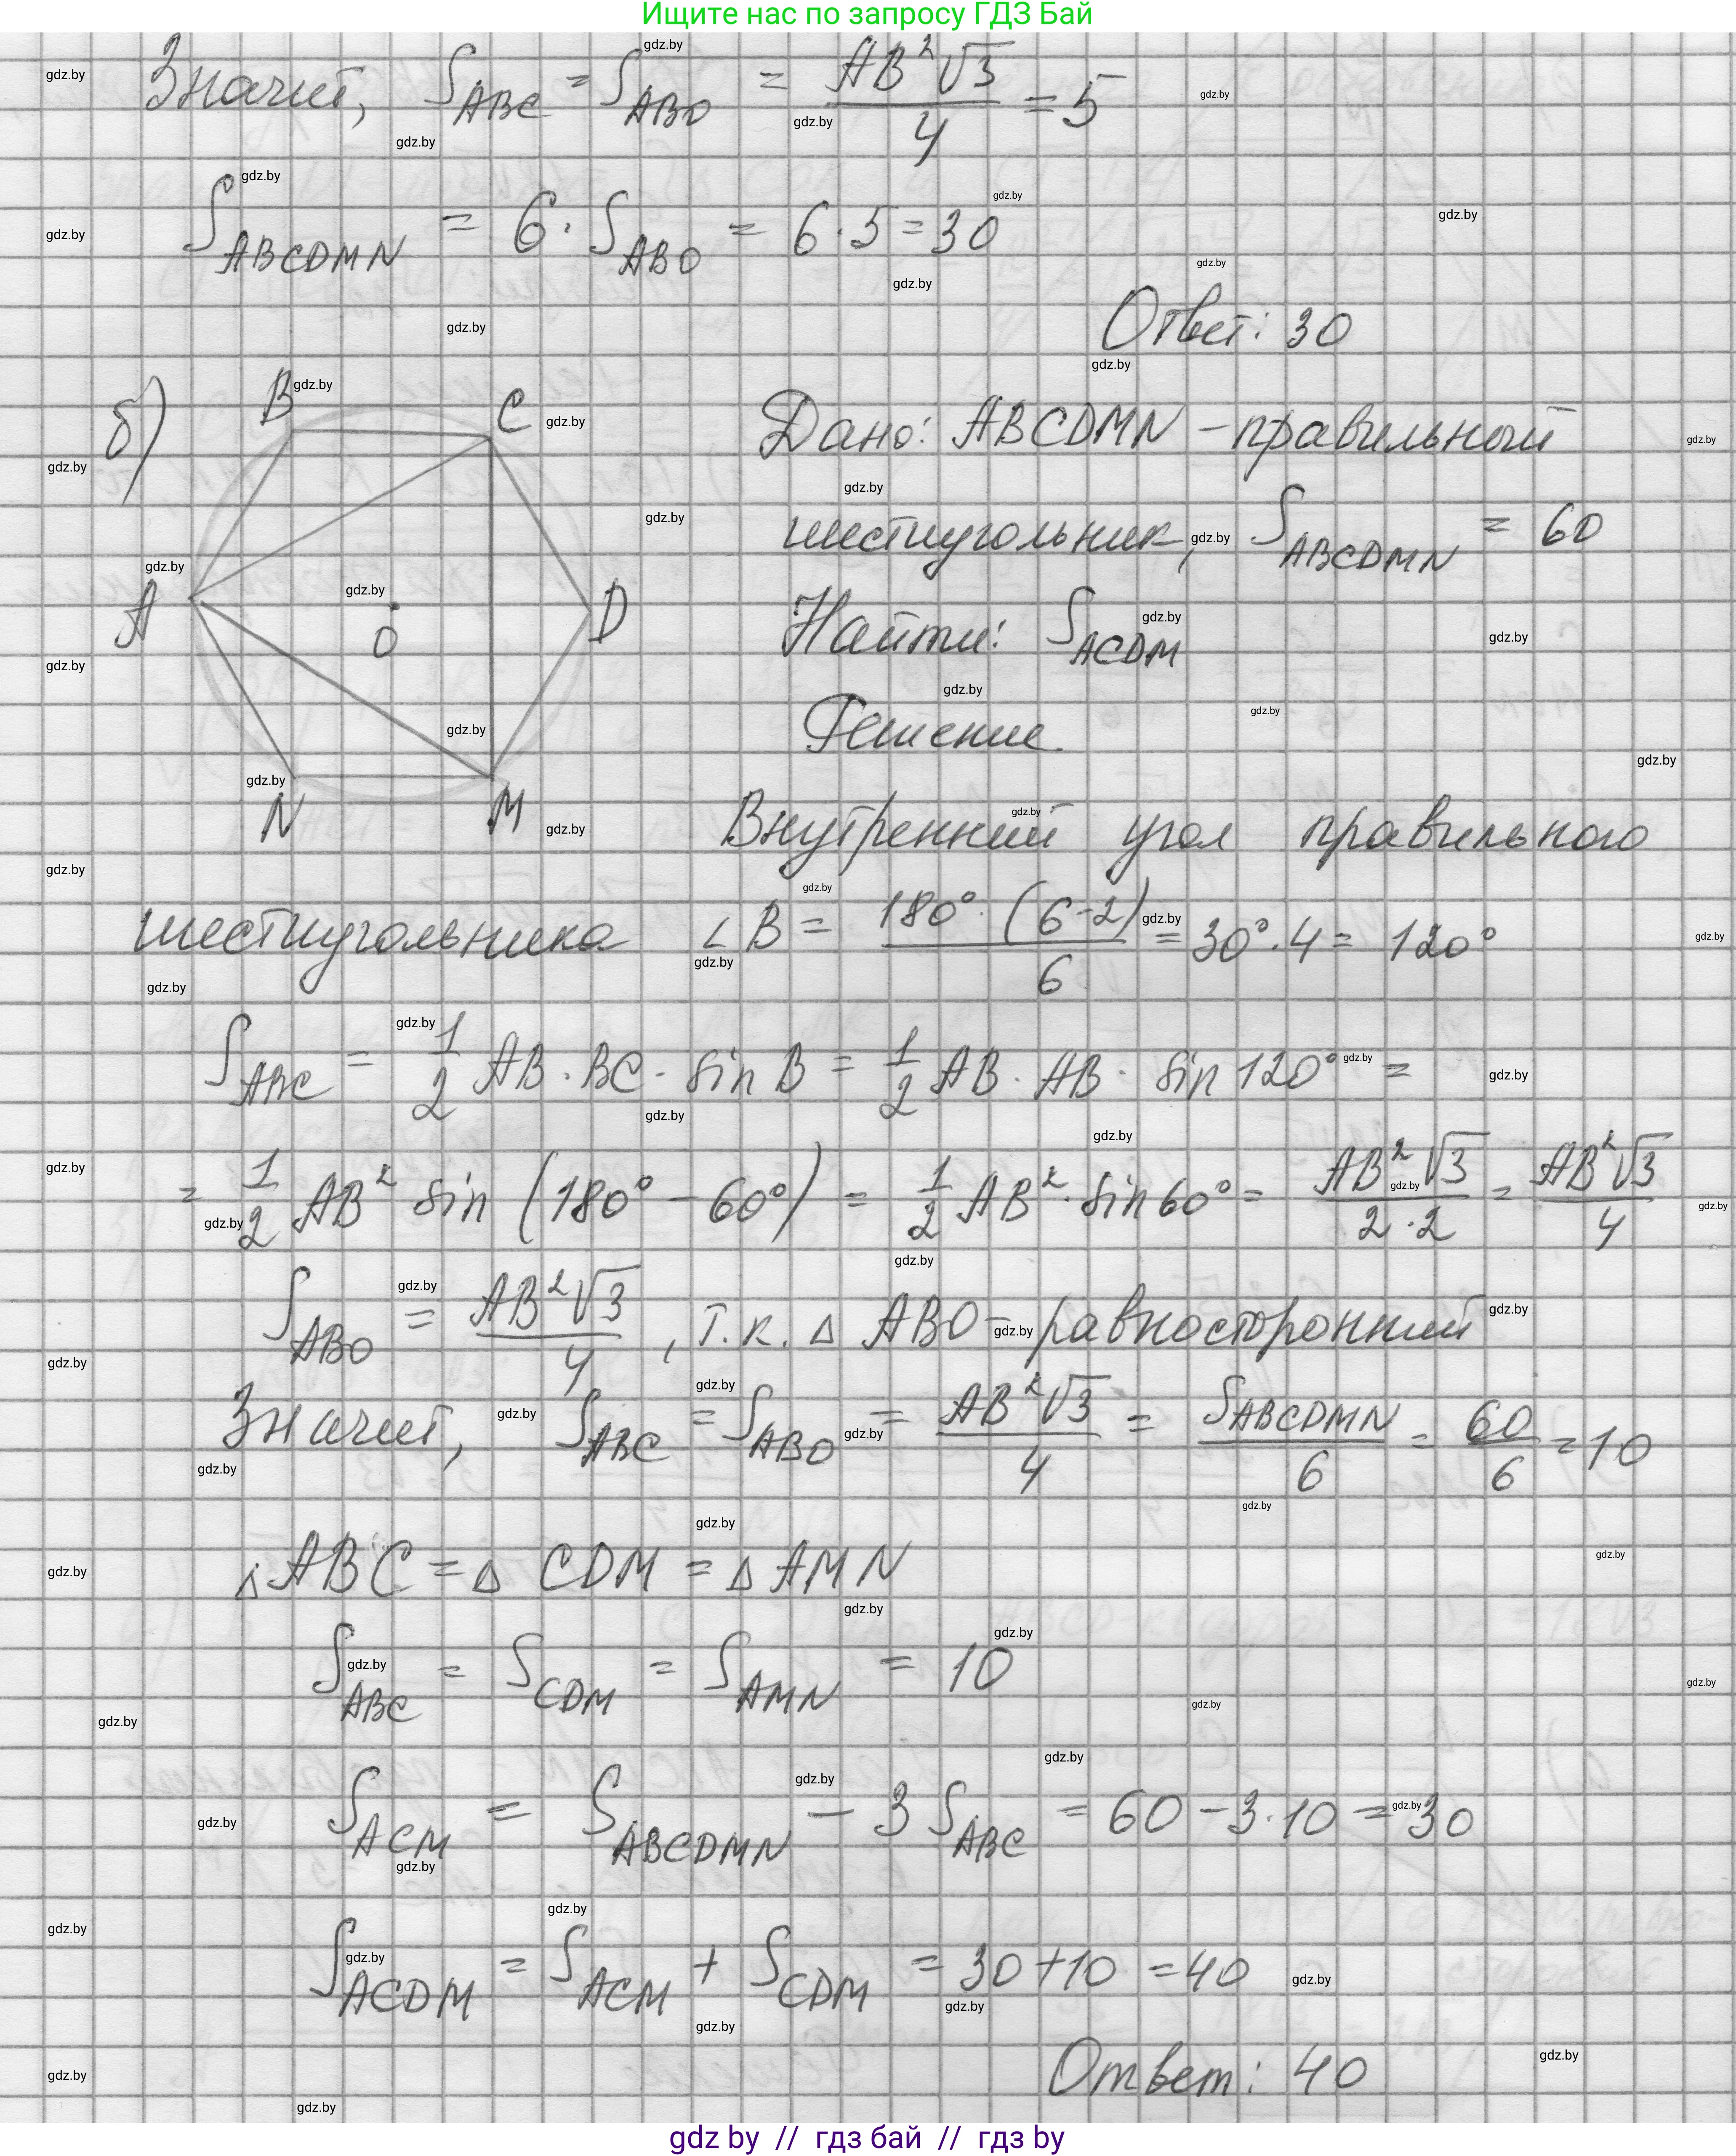 Ищите нас по запросу ГДЗ Бай
Значит, S_ABC = S_ABO = AB²√3/4 = 5
S_ABCDMN = 6 · S_ABO = 6 · 5 = 30
Ответ: 30
б) B C A O D N M
Дано: ABCDMN – правильный
шестиугольник, S_ABCDMN = 60
Найти: S_ACDM
Решение
Внутренний угол правильного
шестиугольника ∠B = 180° · (6-2)/6 = 30° · 4 = 120°
S_ABC = 1/2 AB · BC · sin B = 1/2 AB · AB · sin 120° =
= 1/2 AB² sin (180° – 60°) = 1/2 AB² · sin 60° = AB²√3/2·2 = AB²√3/4
S_ABO = AB²√3/4, т.к. △ ABO – равносторонний
Значит, S_ABC = S_ABO = AB²√3/4 = S_ABCDMN/6 = 60/6 = 10
△ ABC = △ CDM = △ AMN
S_ABC = S_CDM = S_AMN = 10
S_ACM = S_ABCDMN – 3 S_ABC = 60 – 3 · 10 = 30
S_ACDM = S_ACM + S_CDM = 30 + 10 = 40
Ответ: 40
gdz by // гдз бай // гдз by